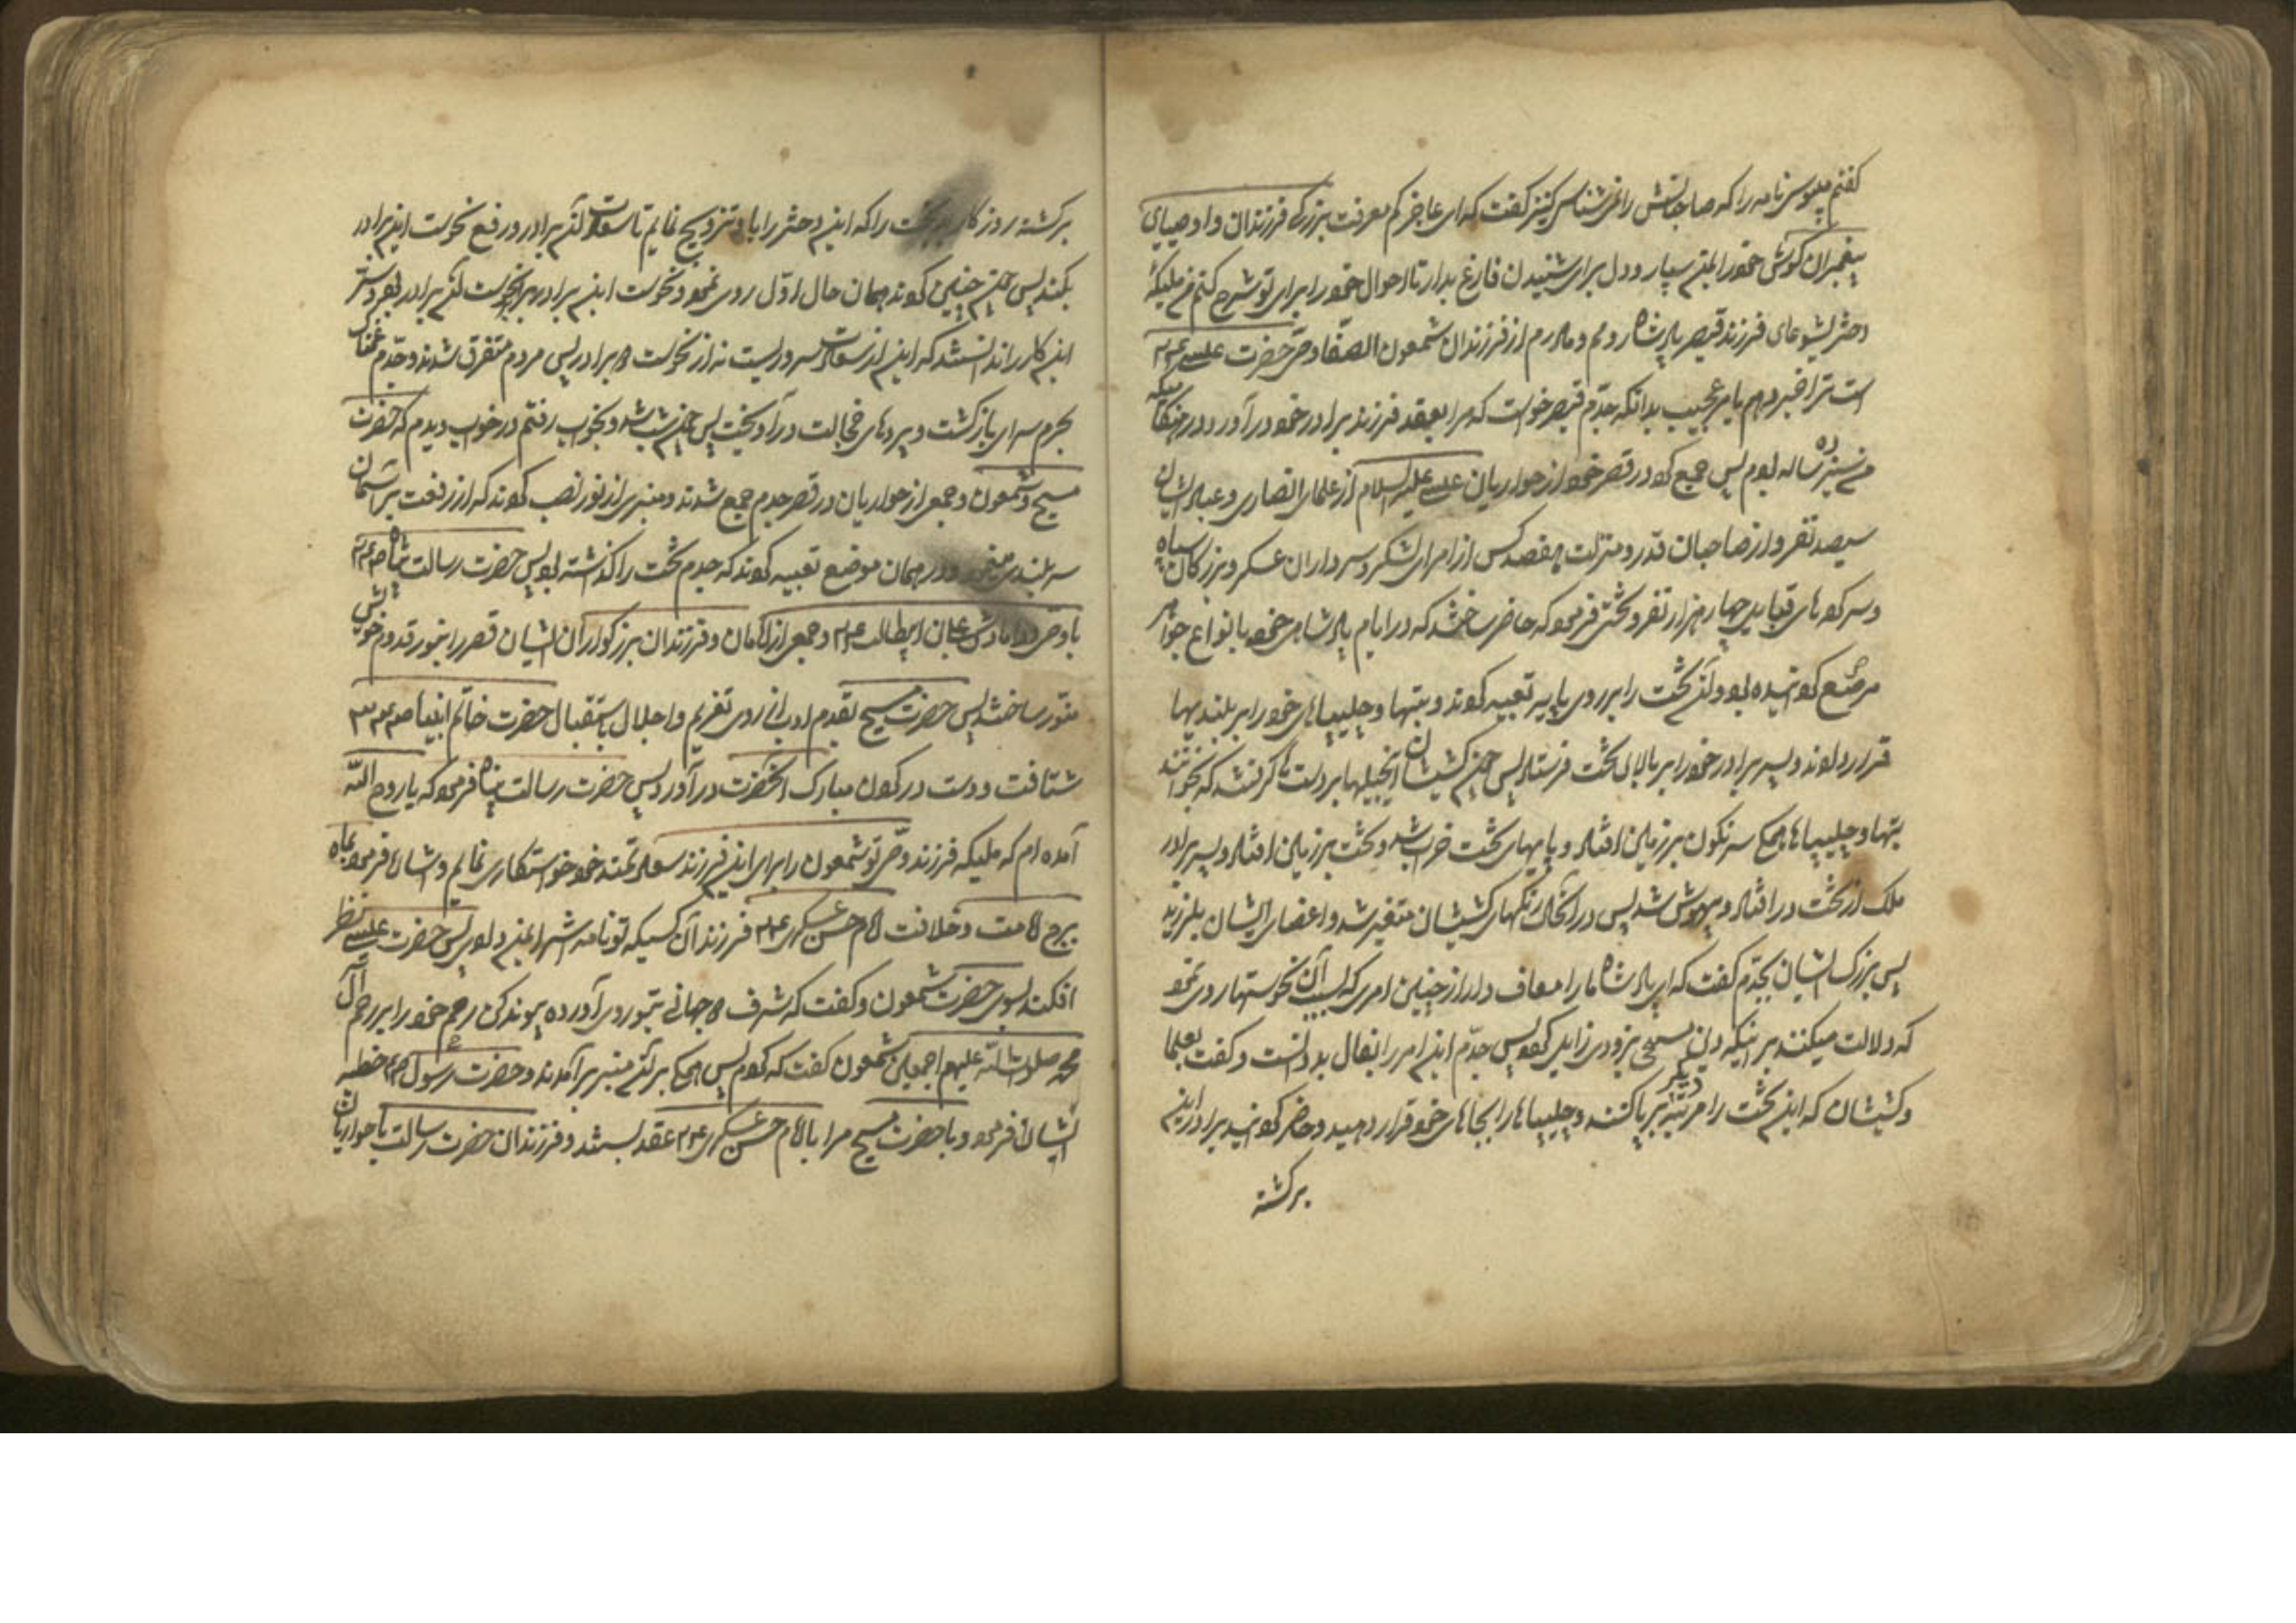 گفتم میبوسی نامه را که صاحبش را نمی‌شناسی کنیز گفت که ای عاجز کم معرفت بزرگی فرزندان و اوصیای
پیغمبران گوش خود را بمن بسپار و دل برای شنیدن فارغ بدار تا احوال خود را برای تو شرح کنم من ملیکه
دختر یشوعای فرزند قیصر پادشاه روم و مادرم از فرزندان شمعون الصفا وصی حضرت عیسی ع‌م
است ترا خبر دهم بامر عجیب بدانکه جدم قیصر خواست که مرا بعقد فرزند برادر خود در آورد در هنگامیکه
من سیزده ساله بودم پس جمع کرد در قصر خود از حواریان عیسی علیه السلام از علمای نصاری و عباد ایشان
سیصد نفر و از صاحبان قدر و منزلت هفتصد کس از امرای لشکر و سرداران عسکر و بزرگان سپاه
و سرکرده‌های قبایل چهار هزار نفر و تختی فرمود که حاضر ساختند که در ایام پادشاهی خود بانواع جواهر
مرصع گردانیده بود و آن تخت را بر روی پایه تعبیه کردند و بتها و چلیپاهای خود را بر بلندیها
قرار دادند و پسر برادر خود را بر بالای تخت فرستاد پس چون کشیشان انجیلها بر دست گرفتند که بخوانند
بتها و چلیپاها همگی سرنگون بر زمین افتاد و پایهای تخت خراب شد و تخت بر زمین افتاد و پسر برادر
ملک از تخت در افتاد و بیهوش شد پس در آنحال رنگهای کشیشان متغیر شد و اعضای ایشان بلرزید
پس بزرگ ایشان بجدم گفت که ای پادشاه ما را معاف دار از چنین امری که بسبب آن نحوستها روی نمود
که دلالت میکنند بر اینکه دین مسیحی بزودی زایل گردد پس جدم این امر را بفال بد دانست و گفت بعلما
و کشیشان که این تخت را مرتبه دیگر بر پا کنند و چلیپاها را بجاهای خود قرار دهید و حاضر گردانید برادر این
برگشته
برگشته روزگار بدبخت را که این دختر را باو تزویج نمایم تا سعادت آن برادر رفع نحوست این برادر
بکند پس چون چنین کردند همان حال اول روی نمود و نحوست این برادر برابر نحوست آن برادر بود و سر
این کار را ندانستند که این از سعادت سروریست نه از نحوست دو برادر پس مردم متفرق شدند و جدم غمناک
بحرم سرای بازگشت و پرده‌های خجالت در آویخت پس چون شب شد و بخواب رفتم در خواب دیدم که حضرت
مسیح و شمعون و جمعی از حواریان در قصر جدم جمع شدند و منبری از نور نصب کردند که از رفعت بر آسمان
سربلندی مینمود و در همان موضع تعبیه کردند که جدم تخت را گذاشته بود پس حضرت رسالت پناه صلعم
با وصی و دامادش علی بن ابیطالب ع‌م و جمعی از امامان و فرزندان بزرگواران ایشان قصر را بنور قدوم خویش
منور ساختند پس حضرت مسیح بقدم ادب از روی تعظیم و اجلال باستقبال حضرت خاتم انبیا صلعم
شتافت و دست در گردن مبارک آنحضرت در آورد پس حضرت رسالت پناه فرمود که یا روح الله
آمده ام که ملیکه فرزند وصی تو شمعون را برای این فرزند سعادتمند خود خواستگاری نمایم و اشاره فرمود بماه
برج امامت و خلافت امام حسن عسکری ع‌م فرزند آن کسیکه تو نامه اش را بمن دادی پس حضرت عیسی نظر
افکند بسوی حضرت شمعون و گفت که شرف دو جهانی بتو روی آورده پیوند کن رحم خود را برحم آل
محمد صلوات الله علیهم اجمعین شمعون گفت که کردم پس همگی بر آن منبر برآمدند و حضرت رسول صلعم خطبه
انشا فرمود و با حضرت مسیح مرا با امام حسن عسکری ع‌م عقد بستند و فرزندان حضرت رسالت با حواریان